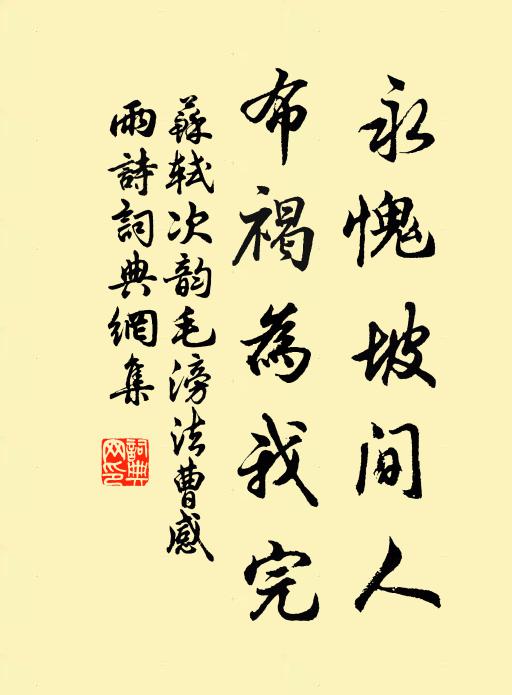 永愧坡間人
布褐為我完
蘇軾次韵毛滂法曹感
雨詩詞典網集
詞典
网印